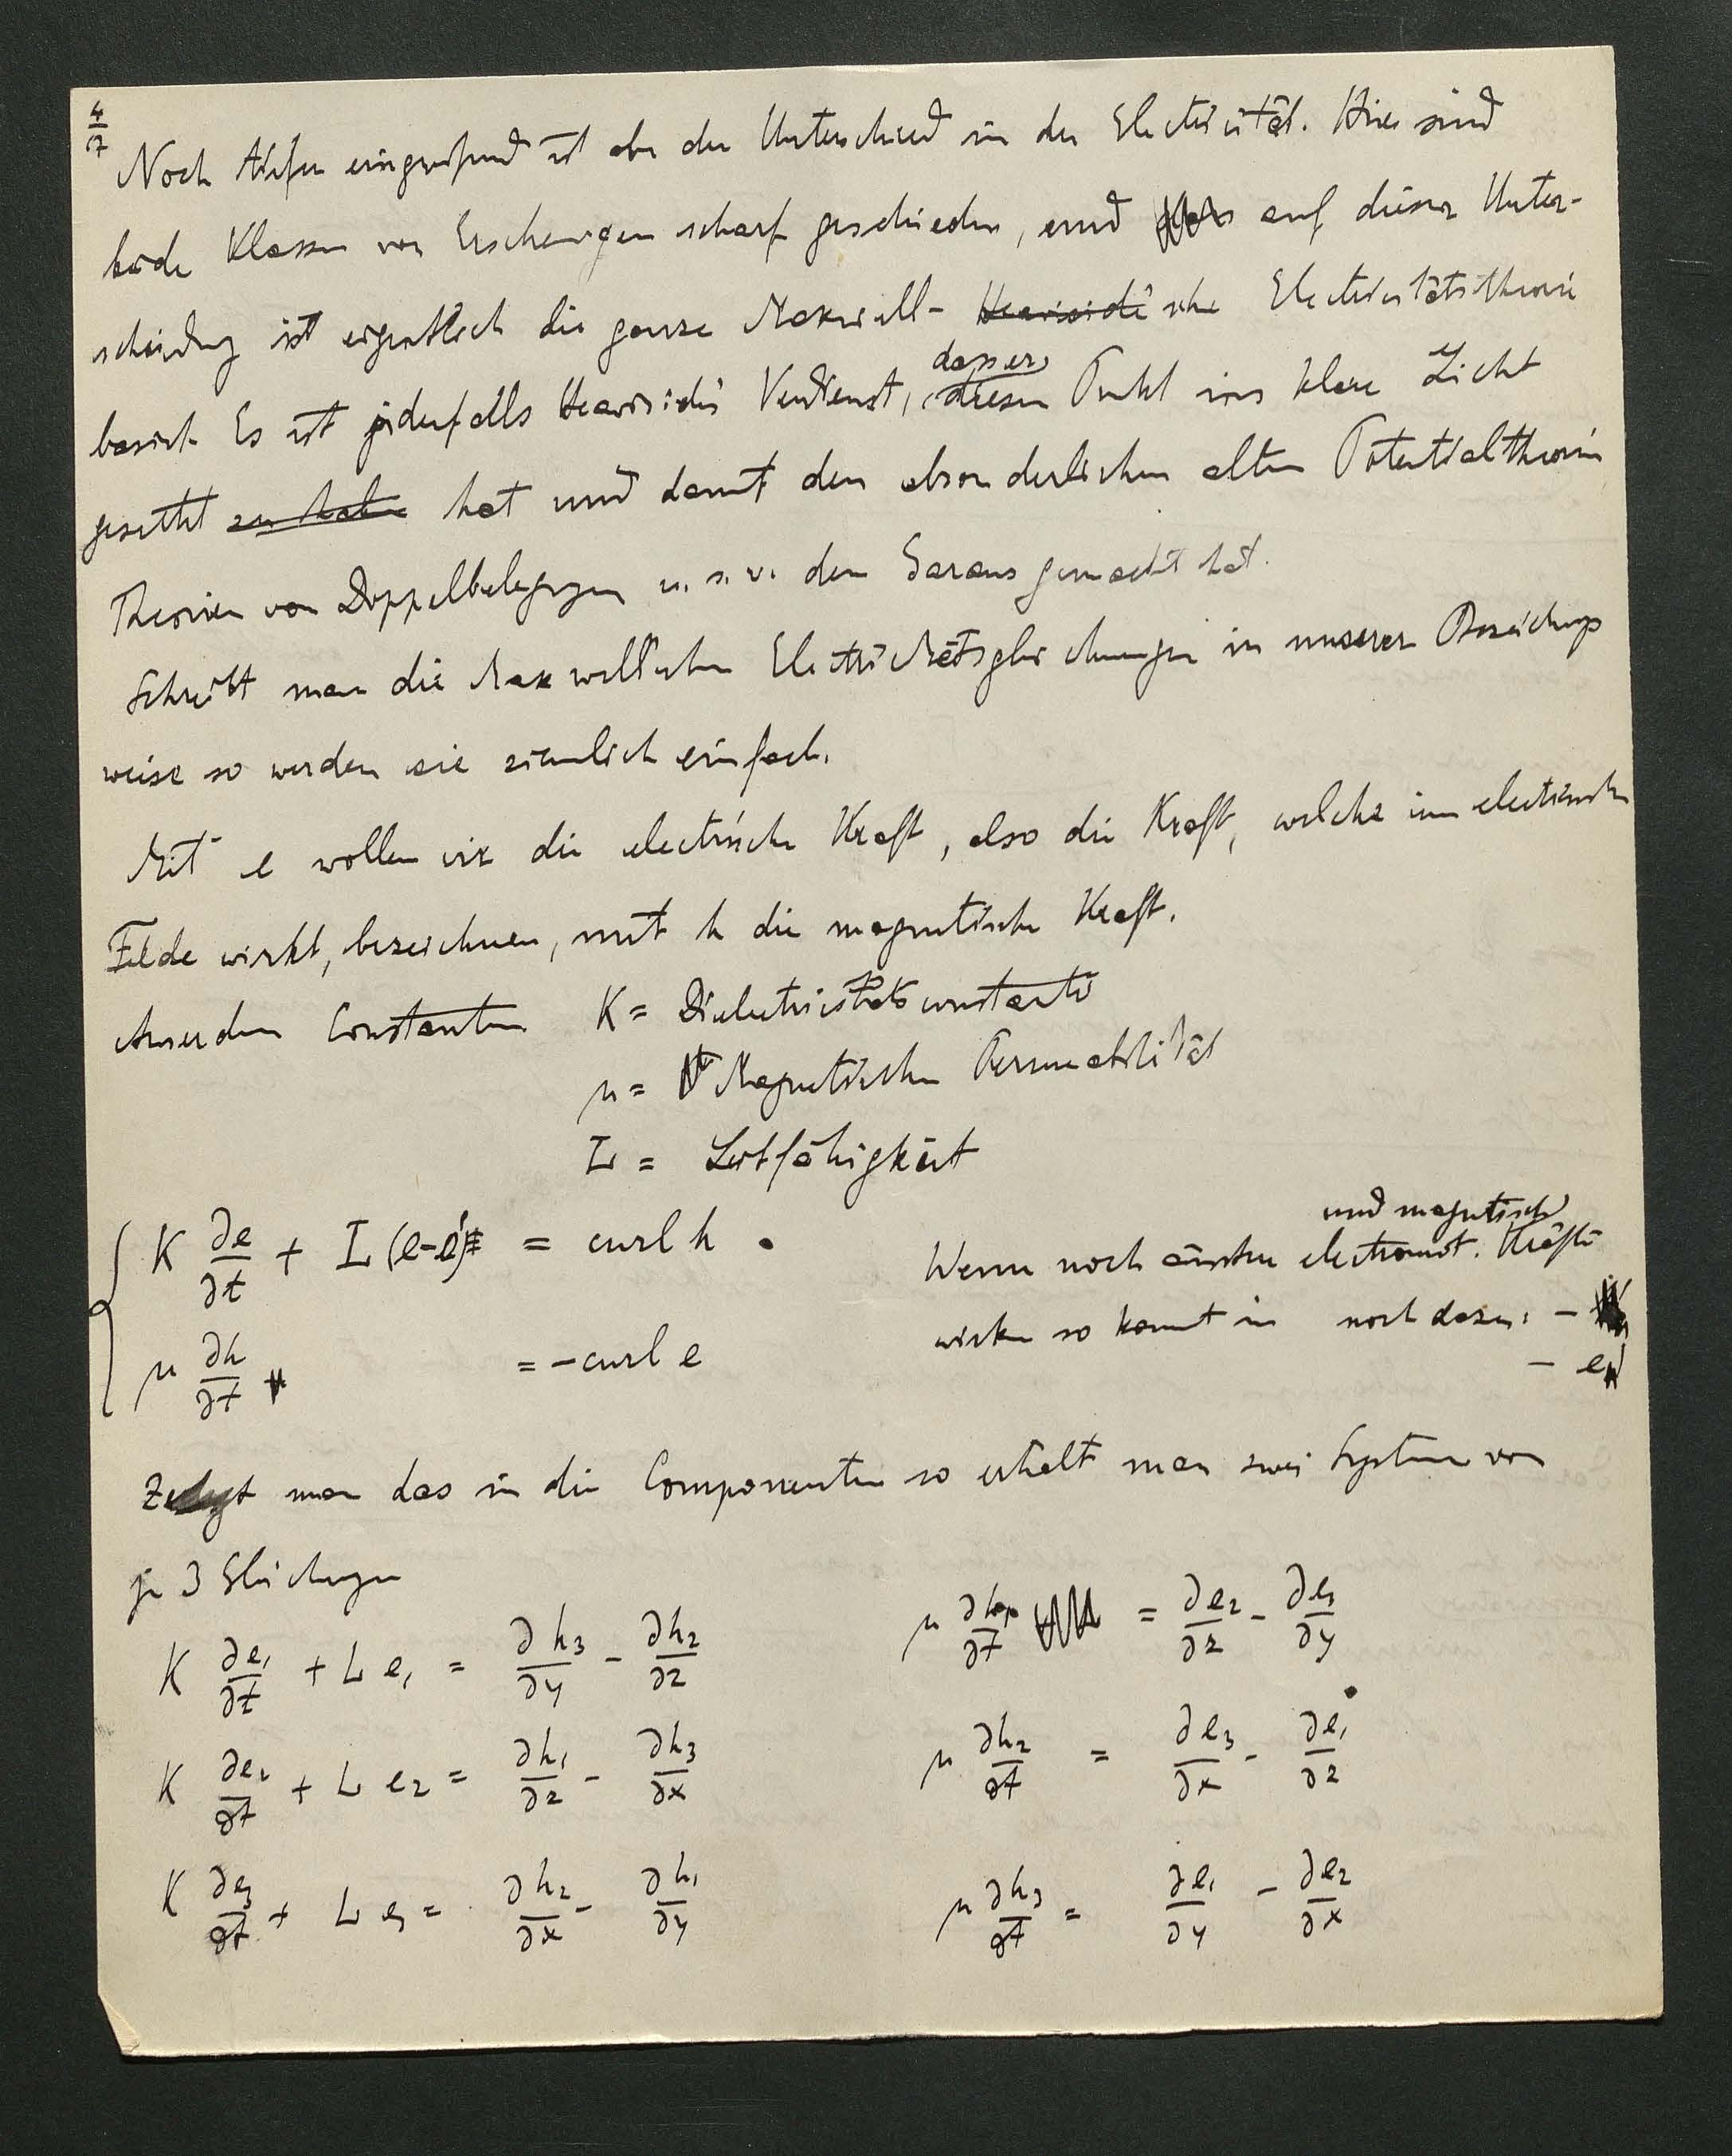 4/7
Noch tiefer eingreifend ist aber der Unterschied in der Electricität. Hier sind
beide Klassen von Erscheinungen scharf geschieden, und auf dieser Unter-
scheidung ist eigentlich die ganze Maxwell- Heaviside'sche Electricitätstheorie
basirt. Es ist jedenfalls Heaviside's Verdienst, dass er diesen Punkt ins klare Licht
gesetzt zu haben hat und damit den absonderlichen alten Potentialtheorie
Theorien von Doppelbelegungen u. s. w. den Garaus gemacht hat.
Schreibt man die Maxwell'schen Electricitätsgleichungen in unserer Bezeichungs
weise so werden sie ziemlich einfach.
Mit e wollen wir die electrische Kraft, also die Kraft, welche im electrischen
Felde wirkt, bezeichnen, mit h die magnetische Kraft.
Ausserdem Constanten K = Dielectricitätsconstante
μ = Magnetischen Permeabilität
L = Leitfähigkeit
K ∂e/∂t + L (e-e') = curl h .
und magnetische
Wenn noch äussere electromot. Kräfte
μ ∂h/∂t = - curl e
wirken so kommt in noch dazu: -
- e
Zerlegt man das in die Componenten so erhält man zwei Systeme von
je 3 Gleichungen
K ∂e₁/∂t + L e₁ = ∂h₃/∂y - ∂h₂/∂z
μ ∂h₁/∂t = ∂e₂/∂z - ∂e₃/∂y
K ∂e₂/∂t + L e₂ = ∂h₁/∂z - ∂h₃/∂x
μ ∂h₂/∂t = ∂e₃/∂x - ∂e₁/∂z
K ∂e₃/∂t + L e₃ = ∂h₂/∂x - ∂h₁/∂y
μ ∂h₃/∂t = ∂e₁/∂y - ∂e₂/∂x